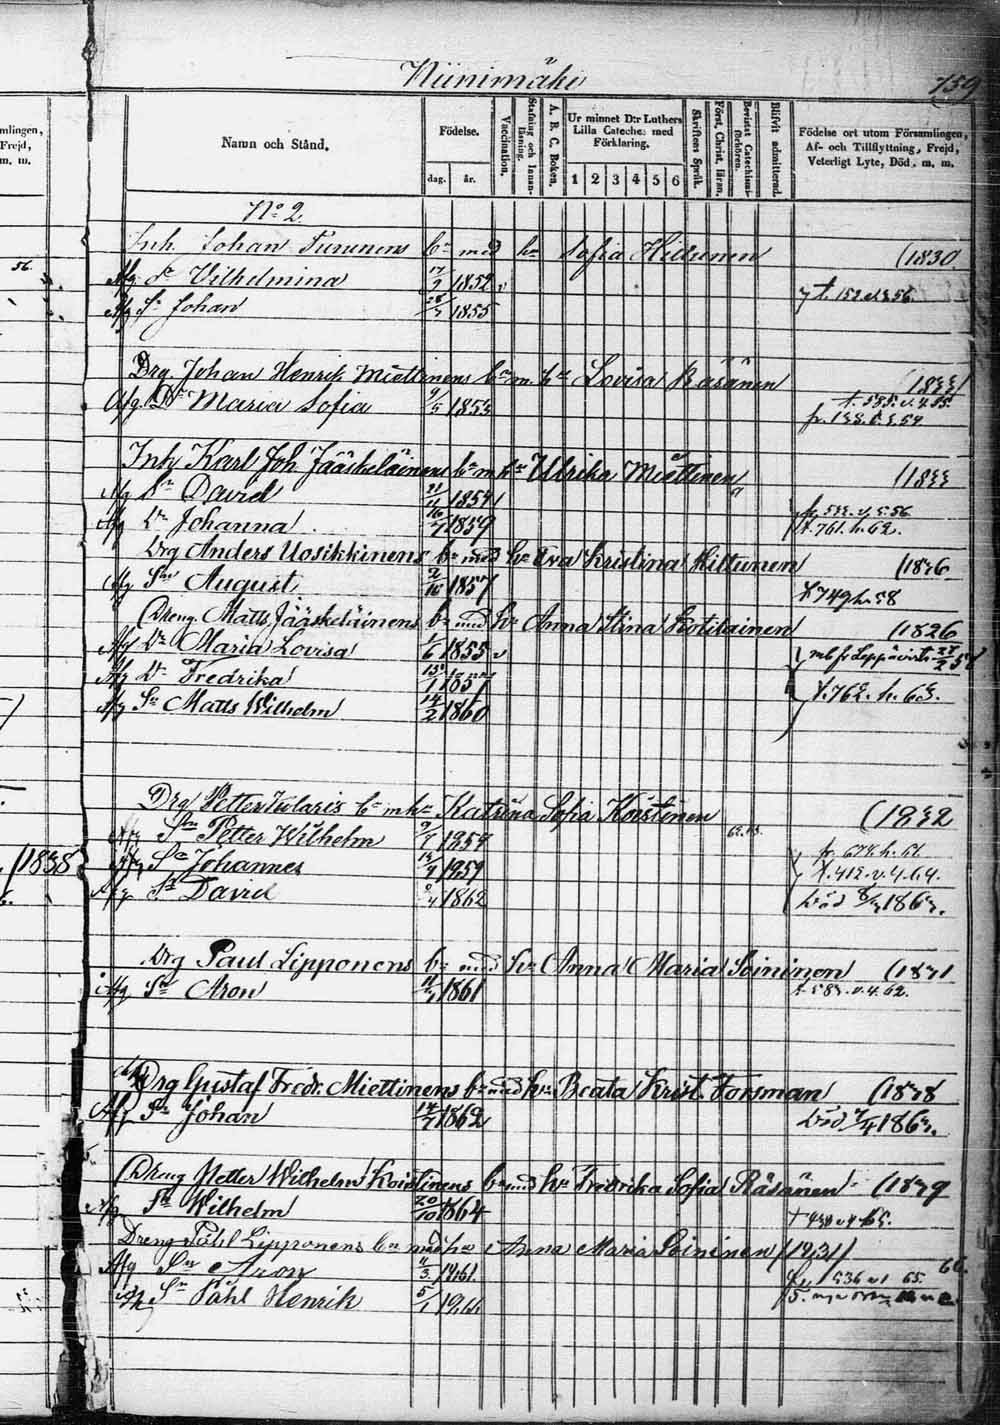 Niinimäki
759
mlingen,
Frejd,
m. m.
Namn och Stånd.
Födelse.
dag. år.
Vaccination.
Stafning och Innanläsning.
A. B. C. Boken.
Ur minnet D:r Luthers
Lilla Cateches med
Förklaring.
1 2 3 4 5 6
Skriftens Språk.
Först. Christ. läran.
Bevistat Catechismiförhören.
Blifvit admitterad.
Födelse ort utom Församlingen,
Af- och Tillflyttning, Frejd,
Veterligt Lyte, Död. m. m.
No 2.
Inh. Johan Turunens bn med hu Sofia Hiltunen (1830.
56.
Afg Dr Vilhelmina 17/9 1852 v
Afg Sn Johan 28/7 1855
Drg. Johan Henrik Miettinens bn m. hu Lovisa Räsänen (1833)
Afg. Dr Maria Sofia 9/5 1853
Inh Karl Joh Jääskeläinens bn m hu Ulrika Miettinen (1833
Afg Sn David 21/11 1854
Afg Dr Johanna 16/7 1859
t. 761. h. 62.
Drg Anders Uosikkinens bn med hu Eva Kristina Hiltunen (1836
Afg Sn August. 2/10 1857
t 749 h. 58
Dreng. Matts Jääskeläinens bn med hu Anna Stina Kotilainen (1826
Afg Dr Maria Lovisa 1/6 1855 v
Afg Dr Fredrika 13/1 1857
Afg Sn Matts Wilhelm 14/2 1860
t. 762. h. 63.
Drg Petter Vidaris bn m hu Katrina Sofia Koistinen (1832
Afg Sn Petter Wilhelm 1854
(1838
Afg Sn Johannes 1859
t. 412. v. 4. 64.
Afg Sn David 1862 Död 1863.
Drg Paul Lipponens bn med hu Anna Maria Soininen (1831
Afg Sn Aron 11/3 1861 t. 583. v. 4. 62.
Drg Gustaf Fredr. Miettinens bn med hu Beata Krist. Forsman (1838
Afg Sn Johan 14/7 1862 Död 1863.
Dreng Petter Wilhelm Koistinens bn med hu Fredrika Sofia Räsänen (1839
Afg Sn Wilhelm 20/10 1864
Dreng Påhl Lipponens bn med hu Anna Maria Soininen (1831)
Afg Sn Aron 11/3 1861.
66.
Afg Sn Påhl Henrik 5/1